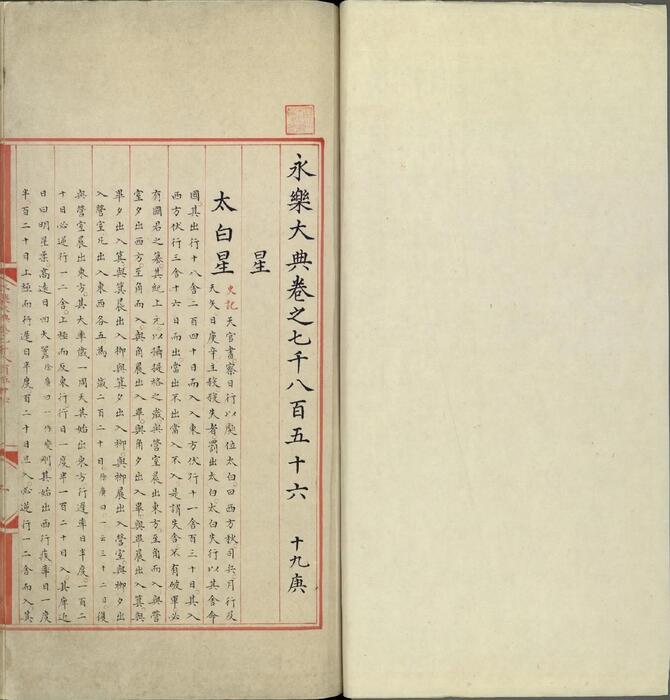 永樂大典卷之七千八百五十六 十九庚
星
太白星 史記天官書察日行以處位太白曰西方秋司兵月行及
天矢日庚辛主殺殺失者罰出太白太白失行以其舍命
國其出行十八舍二百四十日而入入東方伏行十一舍百三十日其入
西方伏行三舍十六日而出當出不出當入不入是謂失舍不有破軍必
有國君之簒其紀上元以攝提格之歲與營室晨出東方至角而入與營
室夕出西方至角而入與角晨出入畢與角夕出入畢與畢晨出入箕與
畢夕出入箕與箕晨出入柳與箕夕出入柳與柳晨出入營室與柳夕出
入營室凡出入東西各五為 歲二百二十日徐廣曰一云三十二日復
與營室晨出東方其大率歲一周天其始出東方行遲率日半度一百二
十日必逆行一二舍上極而反東行行日一度半一百二十日入其庳近
日曰明星柔高遠日曰大嚻徐廣曰一作變剛其始出西行疾率日一度
半百二十日上極而行遲日半度百二十日旦入必逆行一二舍而入其